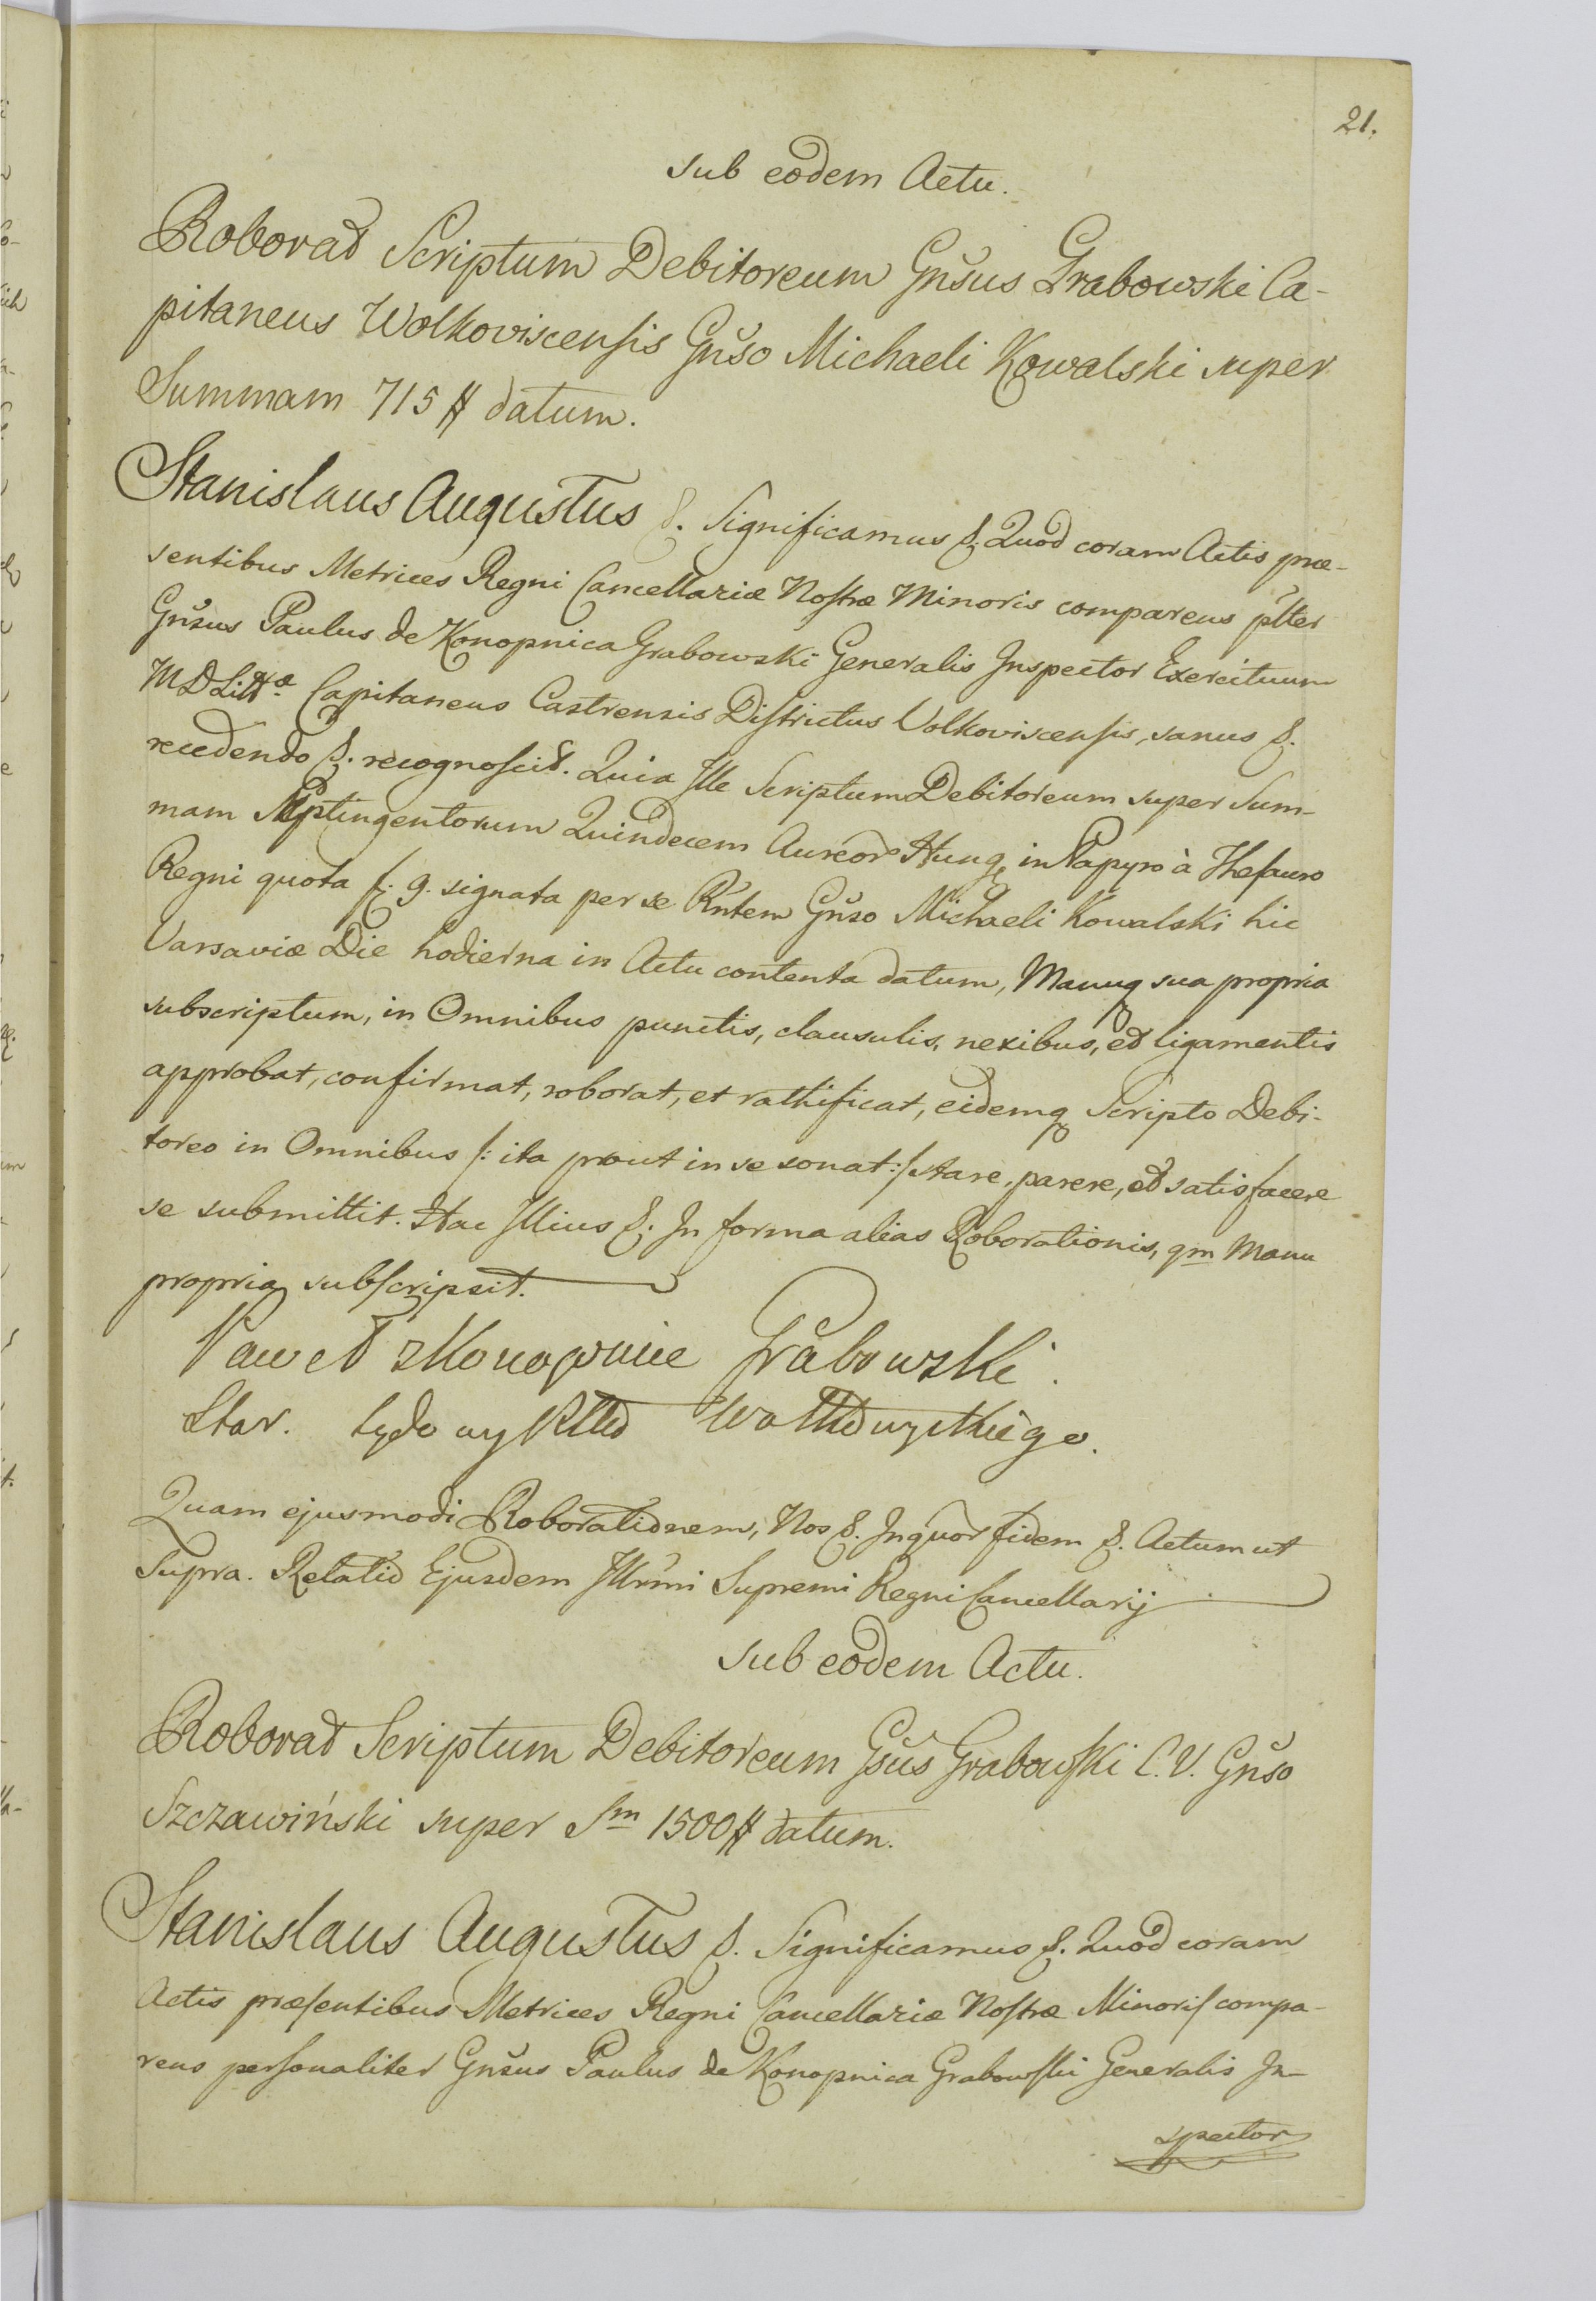 21.
sub eodem Actu.
Roborat Scriptum Debitoreum Gnsus Grabowski Ca-
pitaneus Wolkoviscensis Gnso Michaeli Kowalski super
Summam 715 # datum.
Stanislaus Augustus &. Significamus &. Quod coram Actis præ-
sentibus Metrices Regni Cancellariæ Nostræ Minoris comparens plter
Gnsus Paulus de Konopnica Grabowski Generalis Inspector Exercituum
M D Littæ Capitaneus Castrensis Districtus Volkoviscensis, sanus &.
recedendo &. recognoscit. Quia Ille Scriptum Debitoreum super Sum-
mam Septingentorum Quindecem Aureor Hung, in Papyro à Thesauro
Regni quota f. g. signata per se Rntem Gnso Michaeli Kowalski hic
Varsaviæ Die hodierna in Actu contenta datum, Manuq sua propria
subscriptum, in Omnibus punctis, clausulis, nexibus, et ligamentis
approbat, confirmat, roborat, et rathificat, eidemq Scripto Debi-
toreo in Omnibus /: ita prout in se sonat :/ stare, parere, et satisfacere
se submittit. Hac Illius &. In forma alias Roborationis, qm Manu
propria subscripsit.
Paweł z Konopnice Grabowski.
Star.
Quam ejusmodi Roborationem, Nos &. Inquor fidem &. Actum ut
Supra. Relatio Ejusdem Illrmi Supremi Regni Cancellarij
sub eodem Actu.
Roborat Scriptum Debitoreum Gsus Grabowski C. V. Gnso
Szczawiński super Sm 1500 # datum.
Stanislaus Augustus &. Significamus &. Quod coram
Actis præsentibus Metrices Regni Cancellariæ Nostræ Minoris compa-
rens personaliter Gnsus Paulus de Konopnica Grabowski Generalis In-
spector